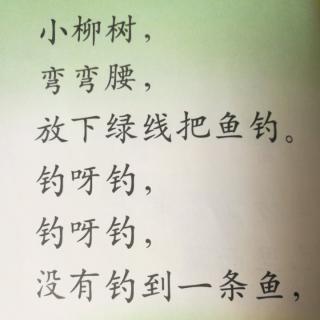 小柳树，
弯弯腰，
放下绿线把鱼钓。
钓呀钓，
钓呀钓，
没有钓到一条鱼，